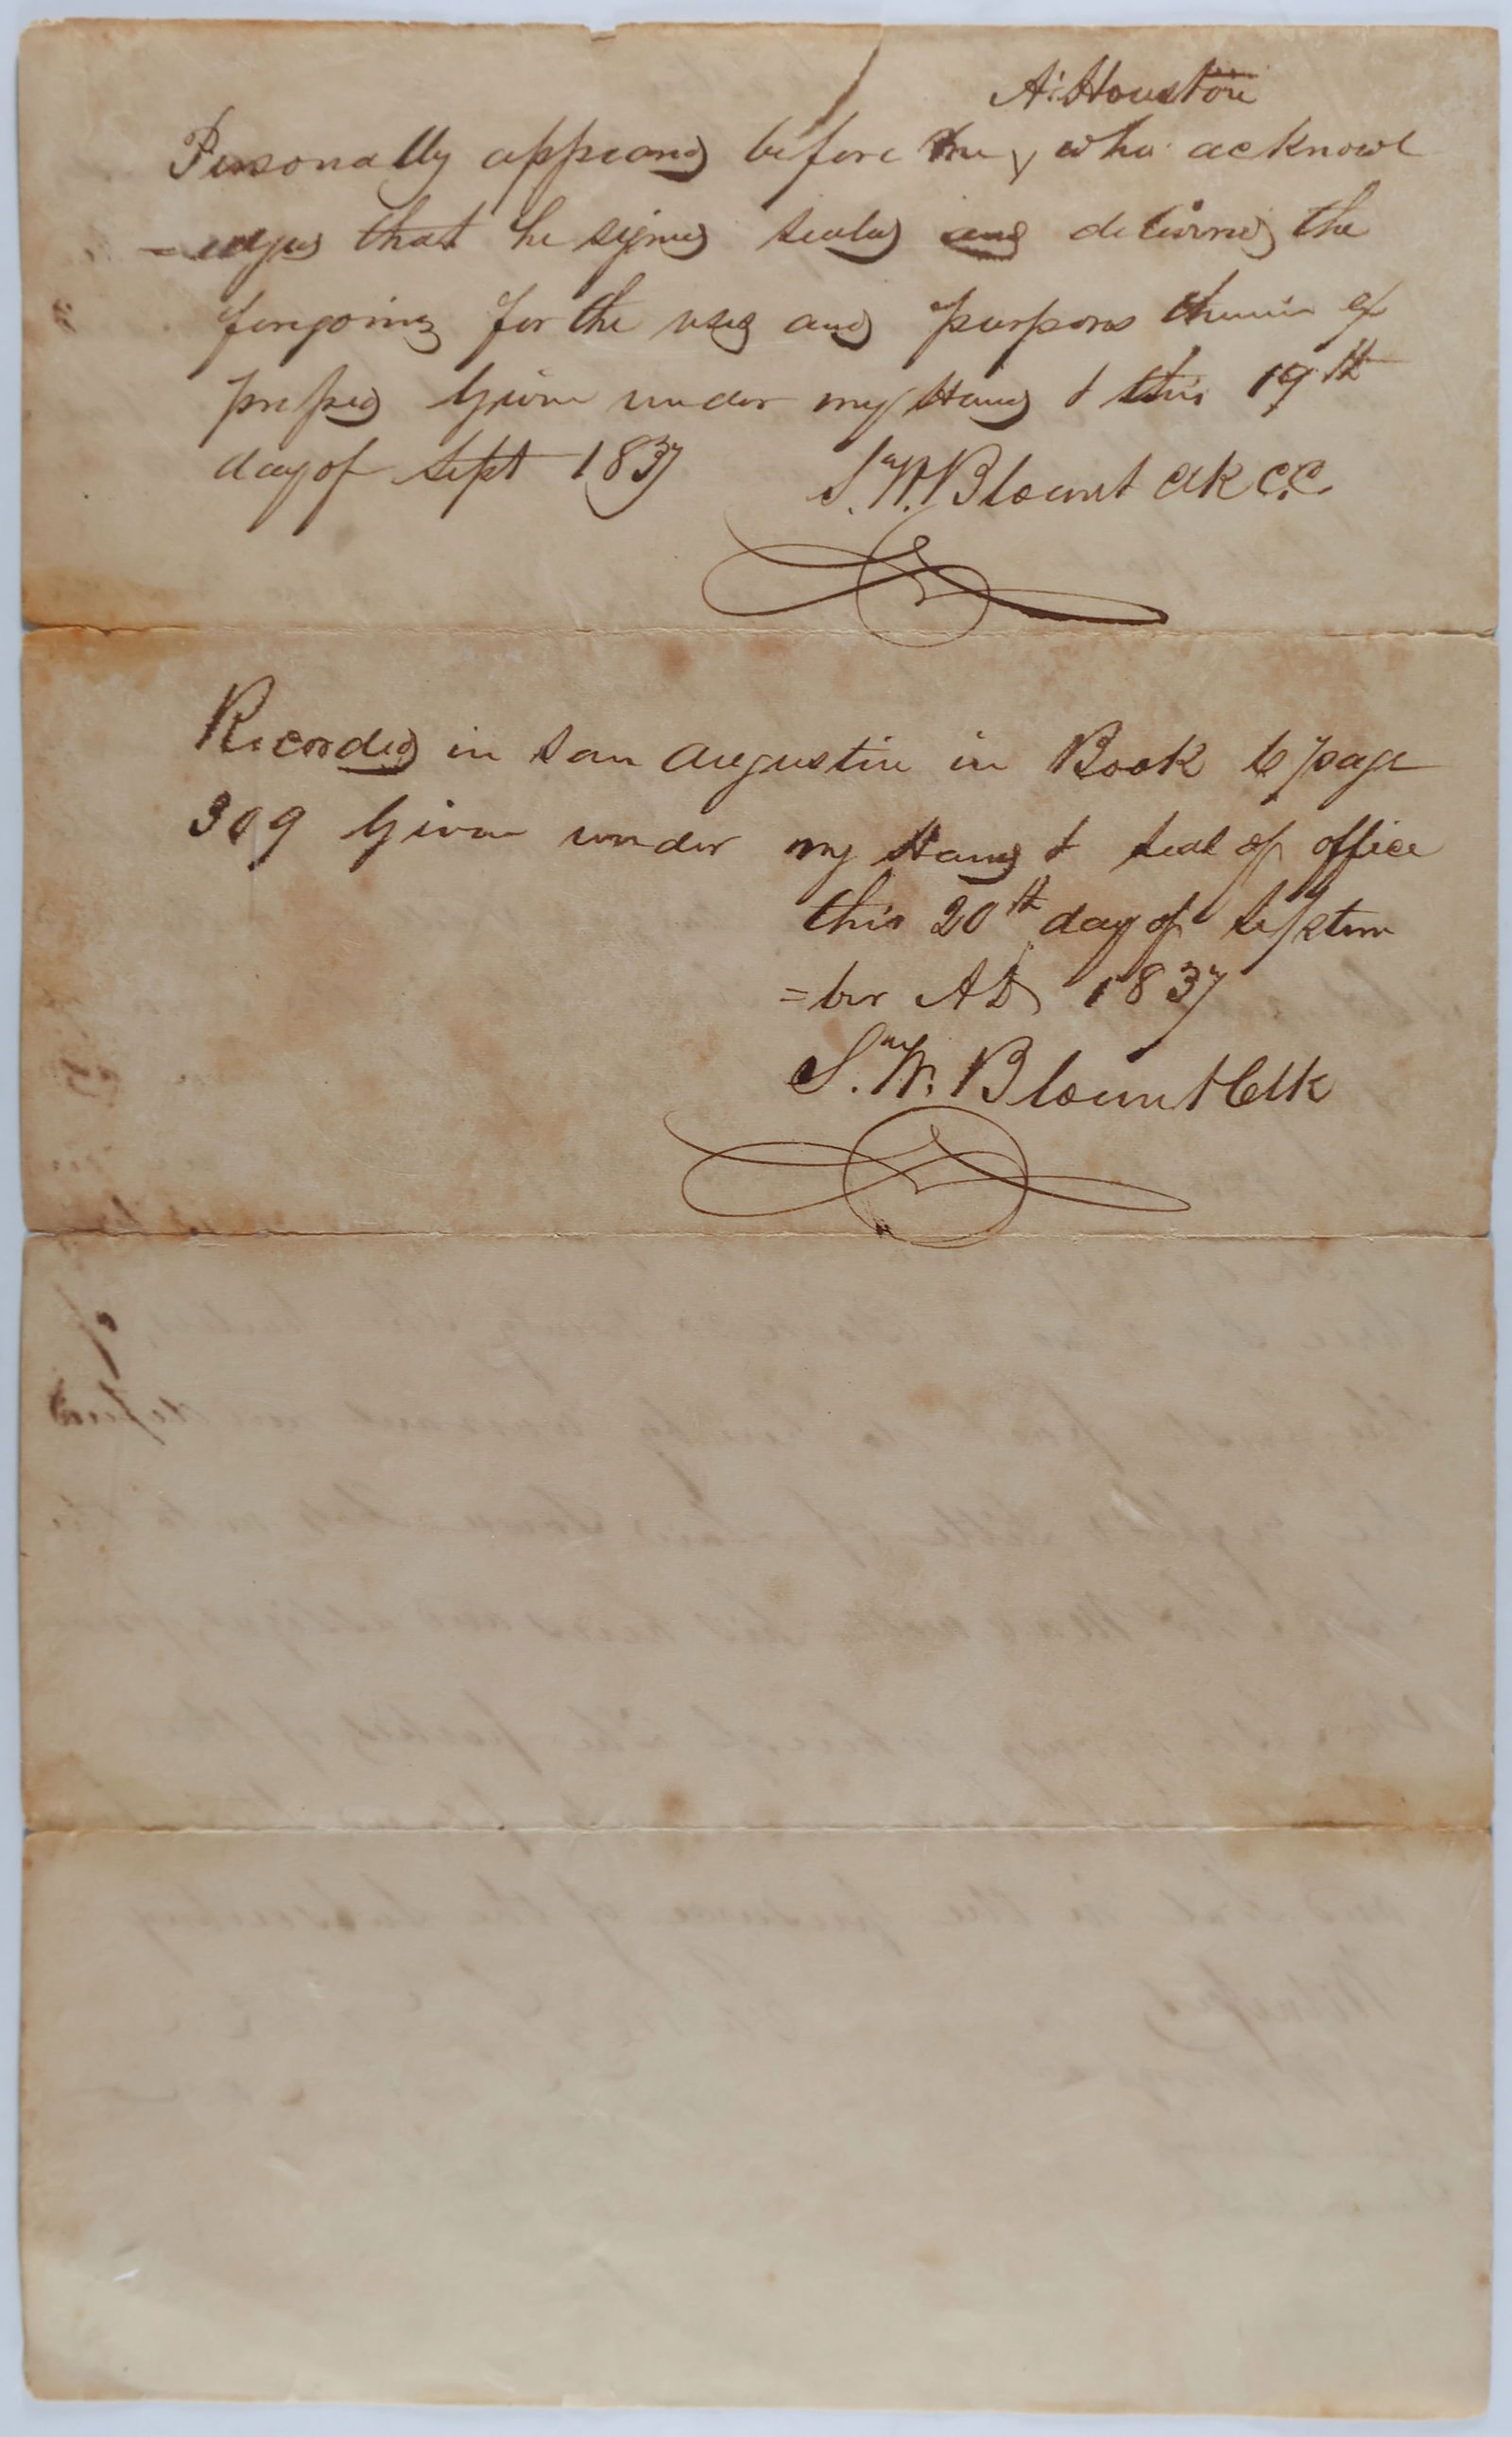 A. Houston
Personally appeard before me, who acknowl
=edges that he signed sealed and delivered the
foregoing for the uses and purposes therein ex
pressed Given under my Hand & this 19th
day of Sept 1837 S. W. Blount Clk C.C.
Recorded in San Augustin in Book B page
309 Given under my Hand & Seal of office
this 20th day of Septem
=ber AD 1837
S. W. Blount Clk